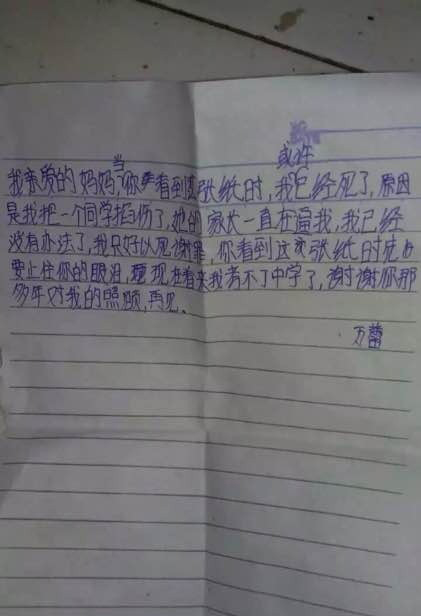 我亲爱的妈妈,当你看到这张纸时,我或许已经死了,原因
是我把一个同学掐伤了,她的家长一直在逼我,我已经
没有办法了,我只好以死谢罪,你看到这张纸时
要止住你的眼泪,现在看来我考不了中学了,谢谢你那
多年对我的照顾,再见。
万蕾